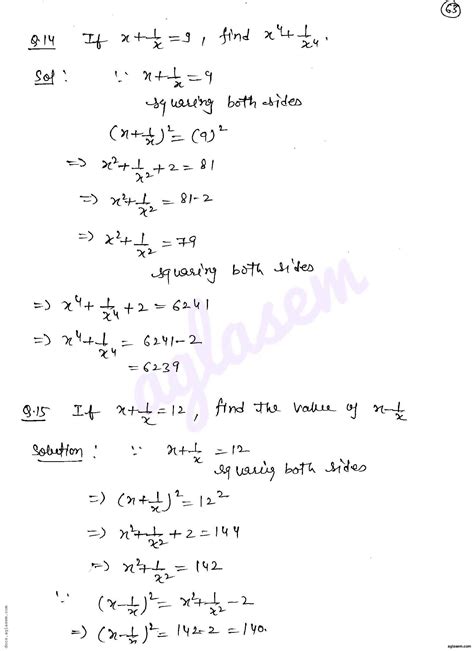 63
Q.14 If x+1/x=9, find x⁴+1/x⁴.
Sol: ∵ x+1/x=9
squaring both sides
(x+1/x)²=(9)²
=> x²+1/x²+2=81
=> x²+1/x²=81-2
=> x²+1/x²=79
squaring both sides
=> x⁴+1/x⁴+2=6241
=> x⁴+1/x⁴=6241-2
=6239
aglasem
Q.15 If x+1/x=12, find the value of x-1/x
Solution: ∵ x+1/x=12
squaring both sides
=> (x+1/x)²=12²
=> x²+1/x²+2=144
=> x²+1/x²=142
∵ (x-1/x)²=x²+1/x²-2
=> (x-1/x)²=142-2=140.
docs.aglasem.com
aglasem.com